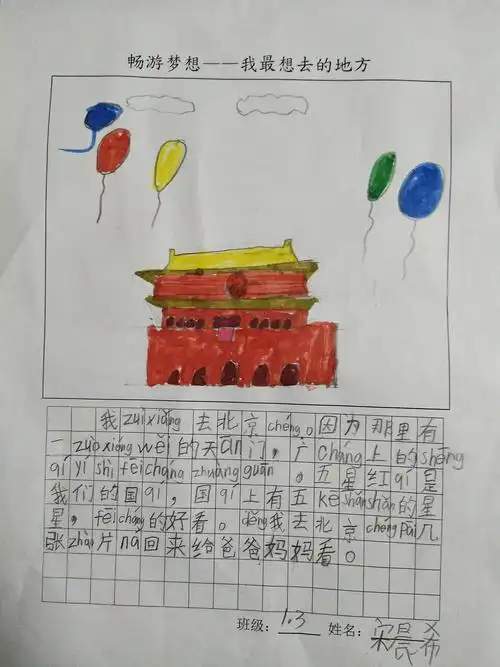 畅游梦想——我最想去的地方
我 zuì xiǎng 去北京 chéng。因为那里有
一 zuò xióng wěi 的天ān门，广 chǎng 上的 shēng
qí yí shì fēi cháng zhuàng guān。五星红 qí 是
我们的国 qí，国 qí 上有五 kē shǎn shǎn 的星
星，fēi cháng 的好看。děng 我去北京 chéng pāi 几
张 zhào 片 ná 回来给爸爸妈妈看。
班级：1.3 姓名：